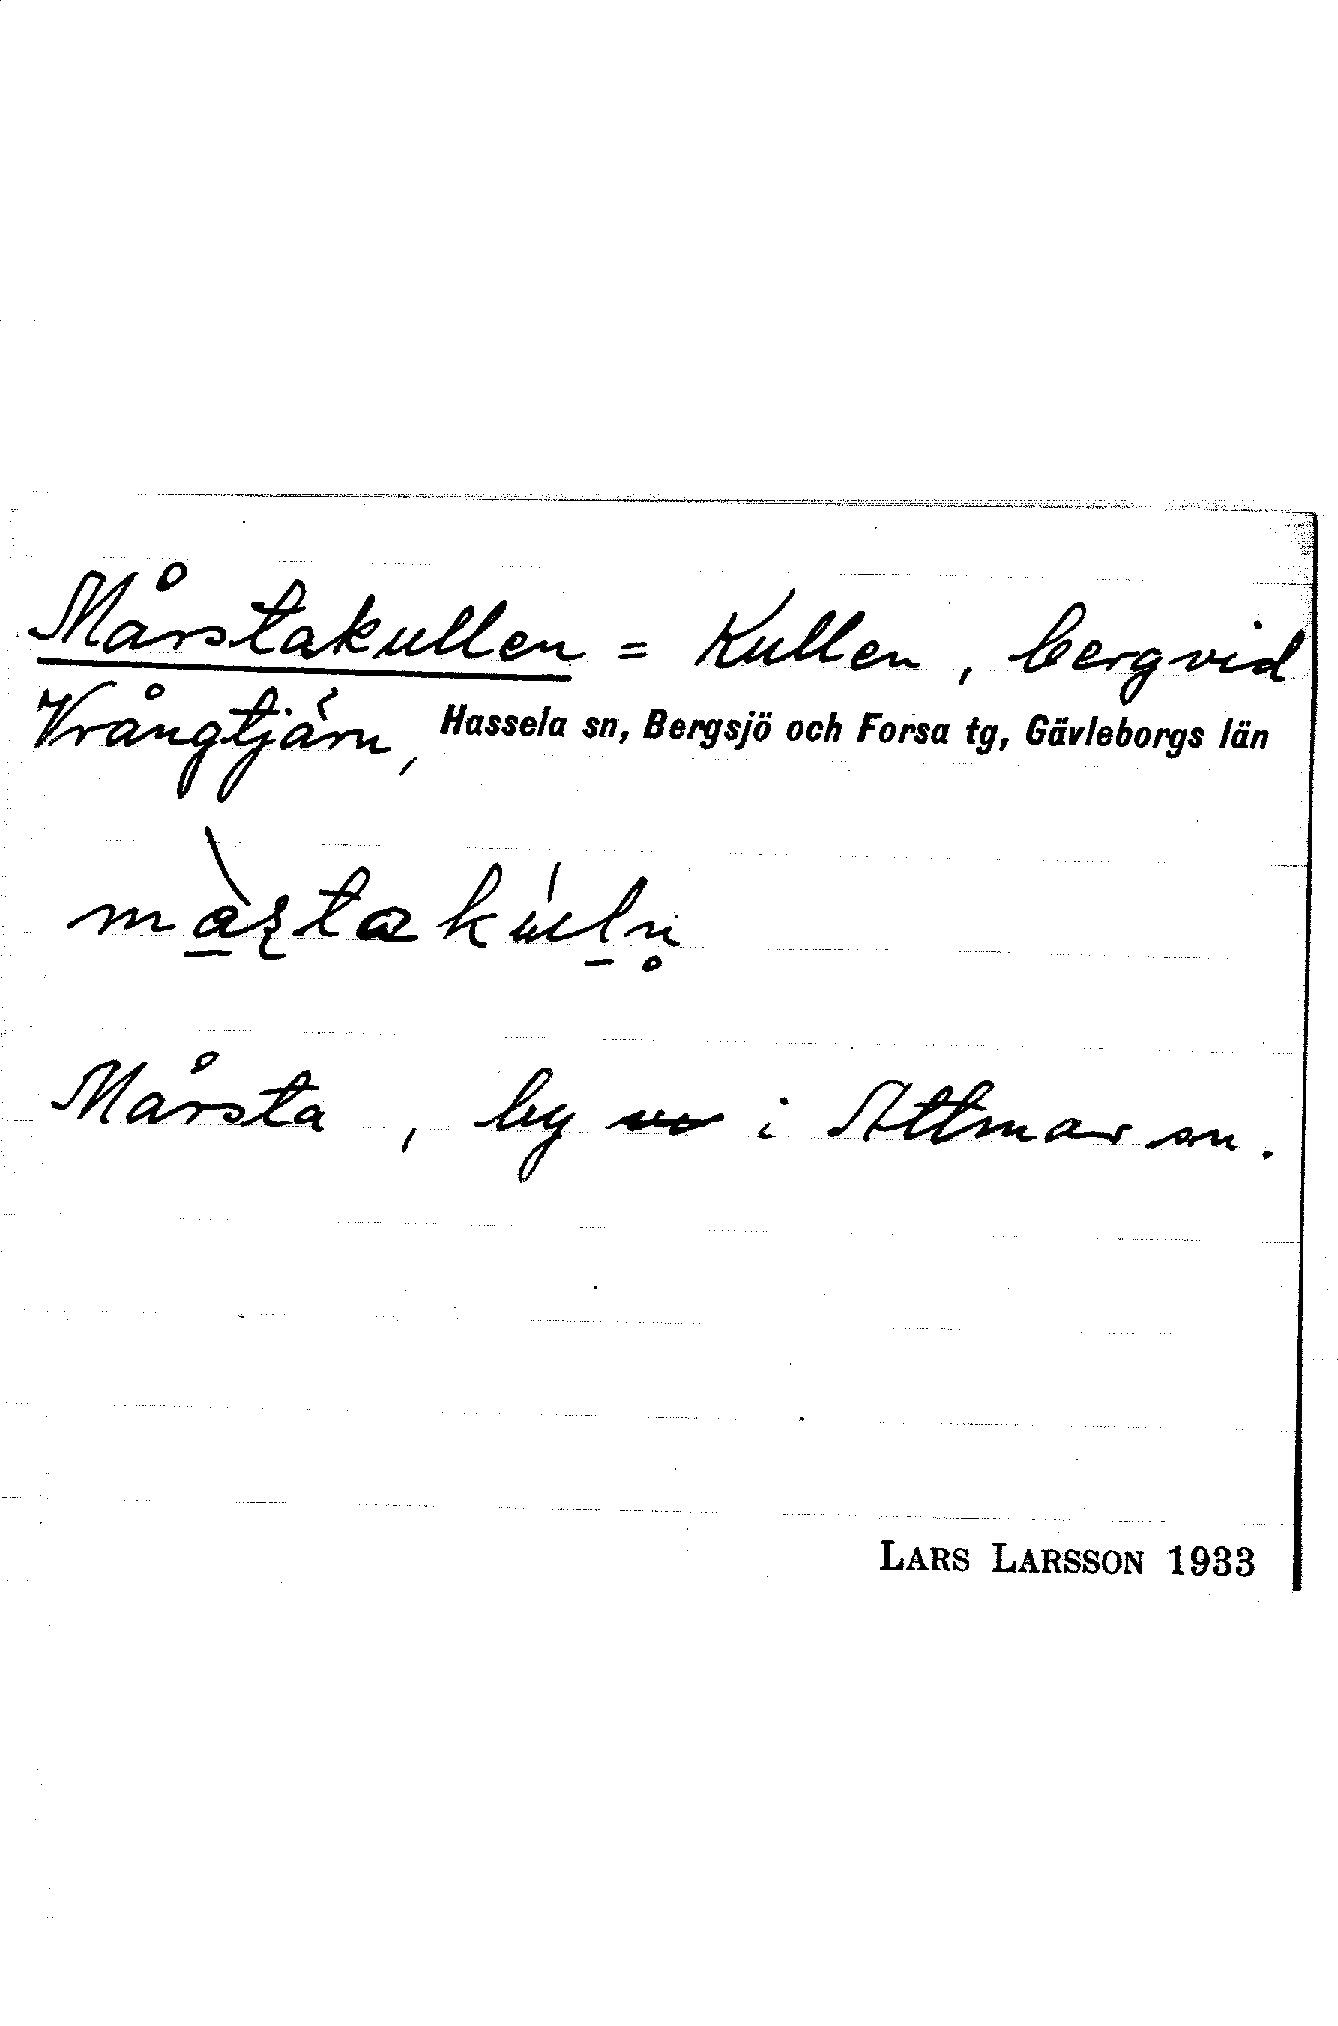 Mårstakullen = Kullen, berg vid
Vrångtjärn, Hassela sn, Bergsjö och Forsa tg, Gävleborgs län
Mårsta, by i Attmar sn.
LARS LARSSON 1933